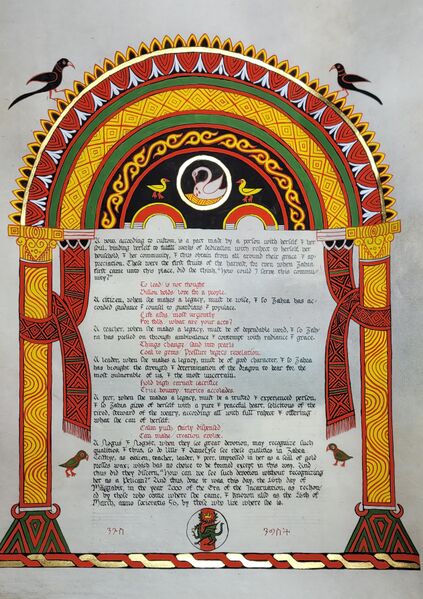 A vow, according to custom, is a pact made by a person with herself & her
soul, binding herself to fulfill works of dedication with respect to herself, her
household, & her community, & thus obtain from all around their grace & ap-
preciation. These were the first fruits of the harvest, for even when Zahra
first came into this place, did she think, "how could I serve this commu-
nity?"
To lead is not thought
Dillon holds love for a people.
A citizen, when she makes a legacy, must be wise, & so Zahra has ac-
corded guidance & counsel to guardians & populace.
Life asks, most urgently
For this: what are your acts?
A teacher, when she makes a legacy, must be of dependable word, & so Zah-
ra has passed on through ambivalence & contempt with radiance & grace.
Things change, sand into pearls
Coal to gems: Pressure begets revelation.
A leader, when she makes a legacy, must be of good character, & so Zahra
has brought the strength & determination of the dragon to bear for the
most vulnerable of us, & the most uncertain.
Hold high earnest sacrifice
True bounty, merits accolades.
A peer, when she makes a legacy, must be a trusted & experienced person,
& so Zahra gives of herself with a pure & peaceful heart, solicitous of the
tired, steward of the weary, according all with full respect & offering
what she can of herself.
Calm pulls, fairly dispensed
Can make creation evolve.
A Nəgus & Nəgəst, when they see great devotion, may recognize such
qualities, & thus, so do and see these qualities in Zahra
as citizen, teacher, leader, & peer, impressed in her as a seal of gold
presses wax, which has no choice to be formed except in this way. And
thus did they discern, "How can we see such devotion without recognizing
her as a Pelican?" And thus, done it was this day, the 16th day of
in the year 2000 of the Era of the Incarnation, as reckon-
ed by those who come where she came, & known also as the 25th of
March, anno Societatis 50, by those who live where she is.
ንጉስ ንግስት